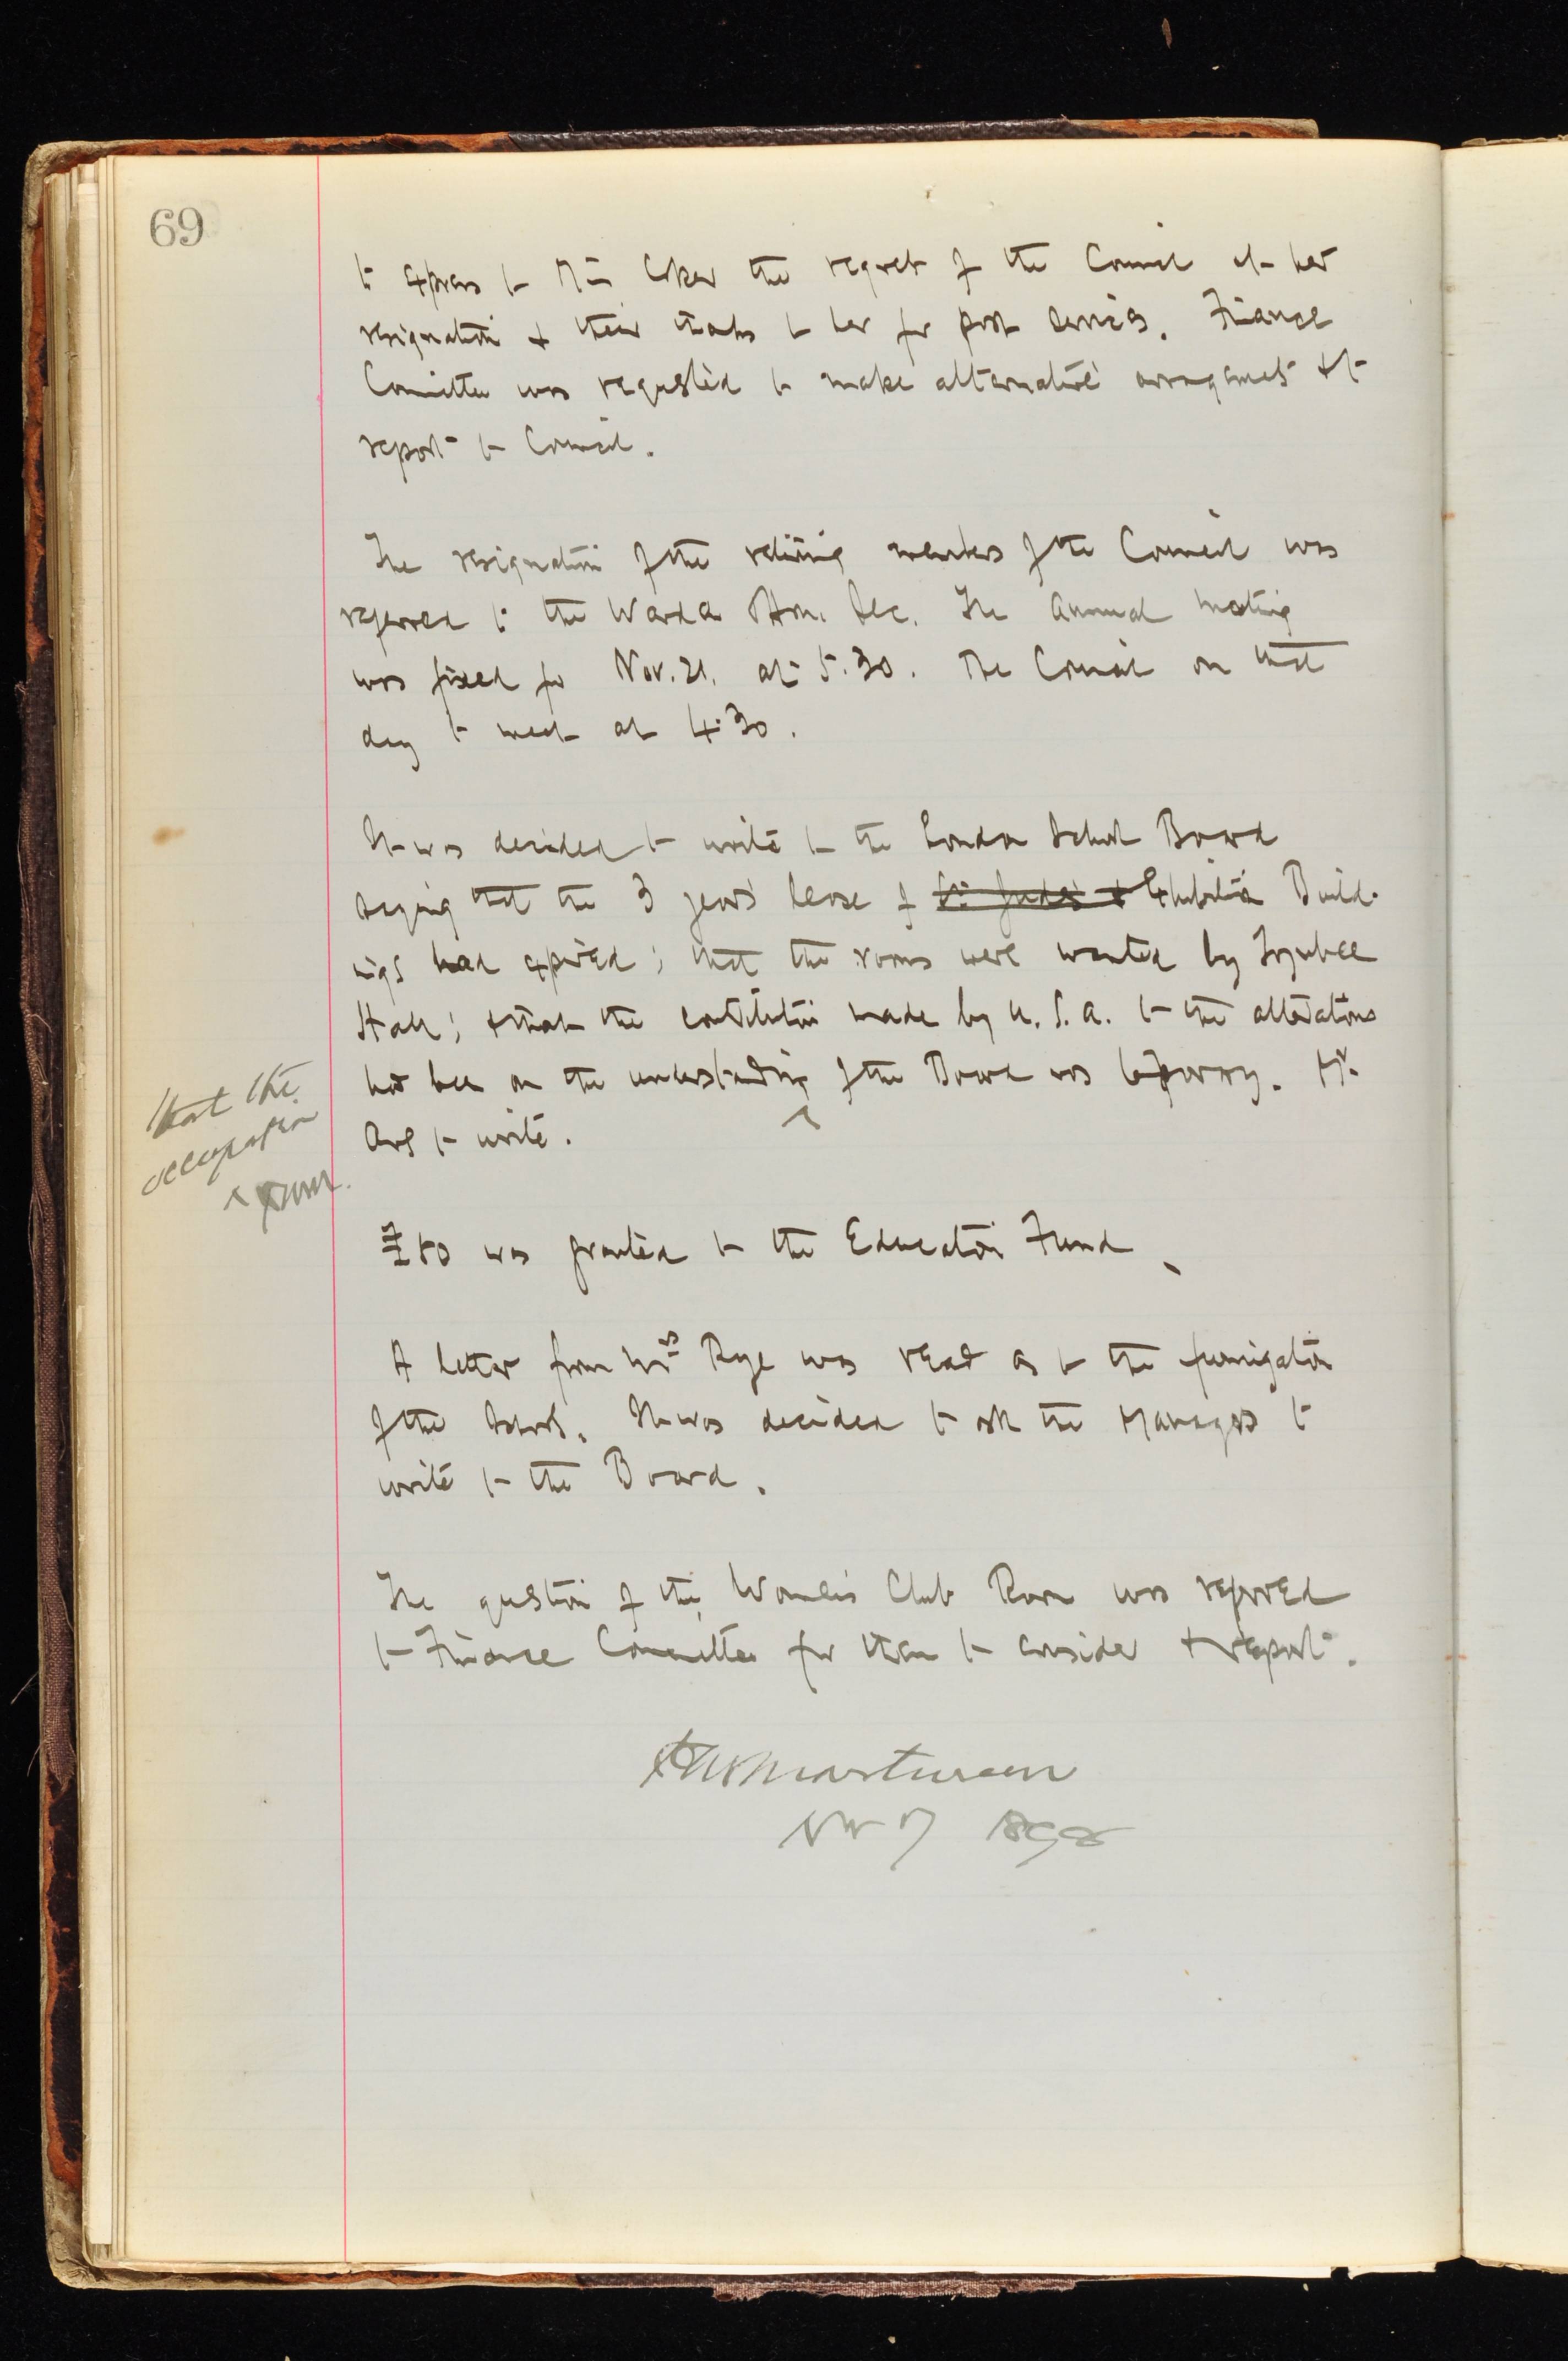 69
to express to Miss Coker the regret of the Council at her
resignation & their thanks to her for past services. Finance
Committee was requested to make alternative arrangements & to
report to Council.
The resignation of the retiring members of the Council was
referred to the Warden & Hon. Sec. The Annual Meeting
was fixed for Nov. 21. at 5.30. The Council on that
day to meet at 4.30.
It was decided to write to the London School Board
saying that the 3 years' lease of St Jude's & Exhibition Build-
ings had expired; that the rooms were wanted by Toynbee
Hall; & that the contribution made by U.S.A. to the alterations
had been on the understanding of the Board was temporary. Mr.
to write.
that the
occupation
£50 was granted to the Education Fund.
A letter from Mrs Rye was read as to the fumigation
of the Schools. It was decided to ask the Managers to
write to the Board.
The question of the Women's Club Room was referred
to Finance Committee for them to consider & report.
Nov 7 1898